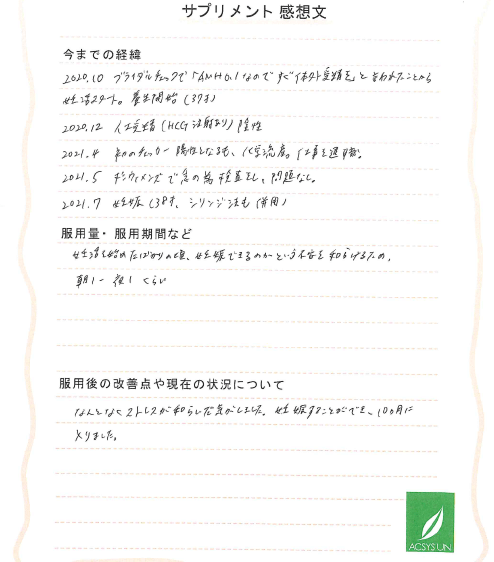 サプリメント 感想文
今までの経緯
2020.10 ブライダルチェックで「AMH0.1なのですぐ体外受精を」と言われたことから
妊活スタート。養生開始(37才)
2020.12 人工受精(HCG注射あり)陰性
2021.4 初のチェッカー陽性となるも、化学流産。仕事を退職。
2021.5 ウィメンズで念の為検査をし、問題なし。
2021.7 妊娠(38才、シリンジ法も併用)
服用量・服用期間など
妊活を始めたばかりの頃、妊娠できるのかという不安を和らげるため、
朝1~夜1くらい
服用後の改善点や現在の状況について
なんとなくストレスが和らいだ気がしました。妊娠することができ、10ヶ月に
なりました。
ACSYS UN